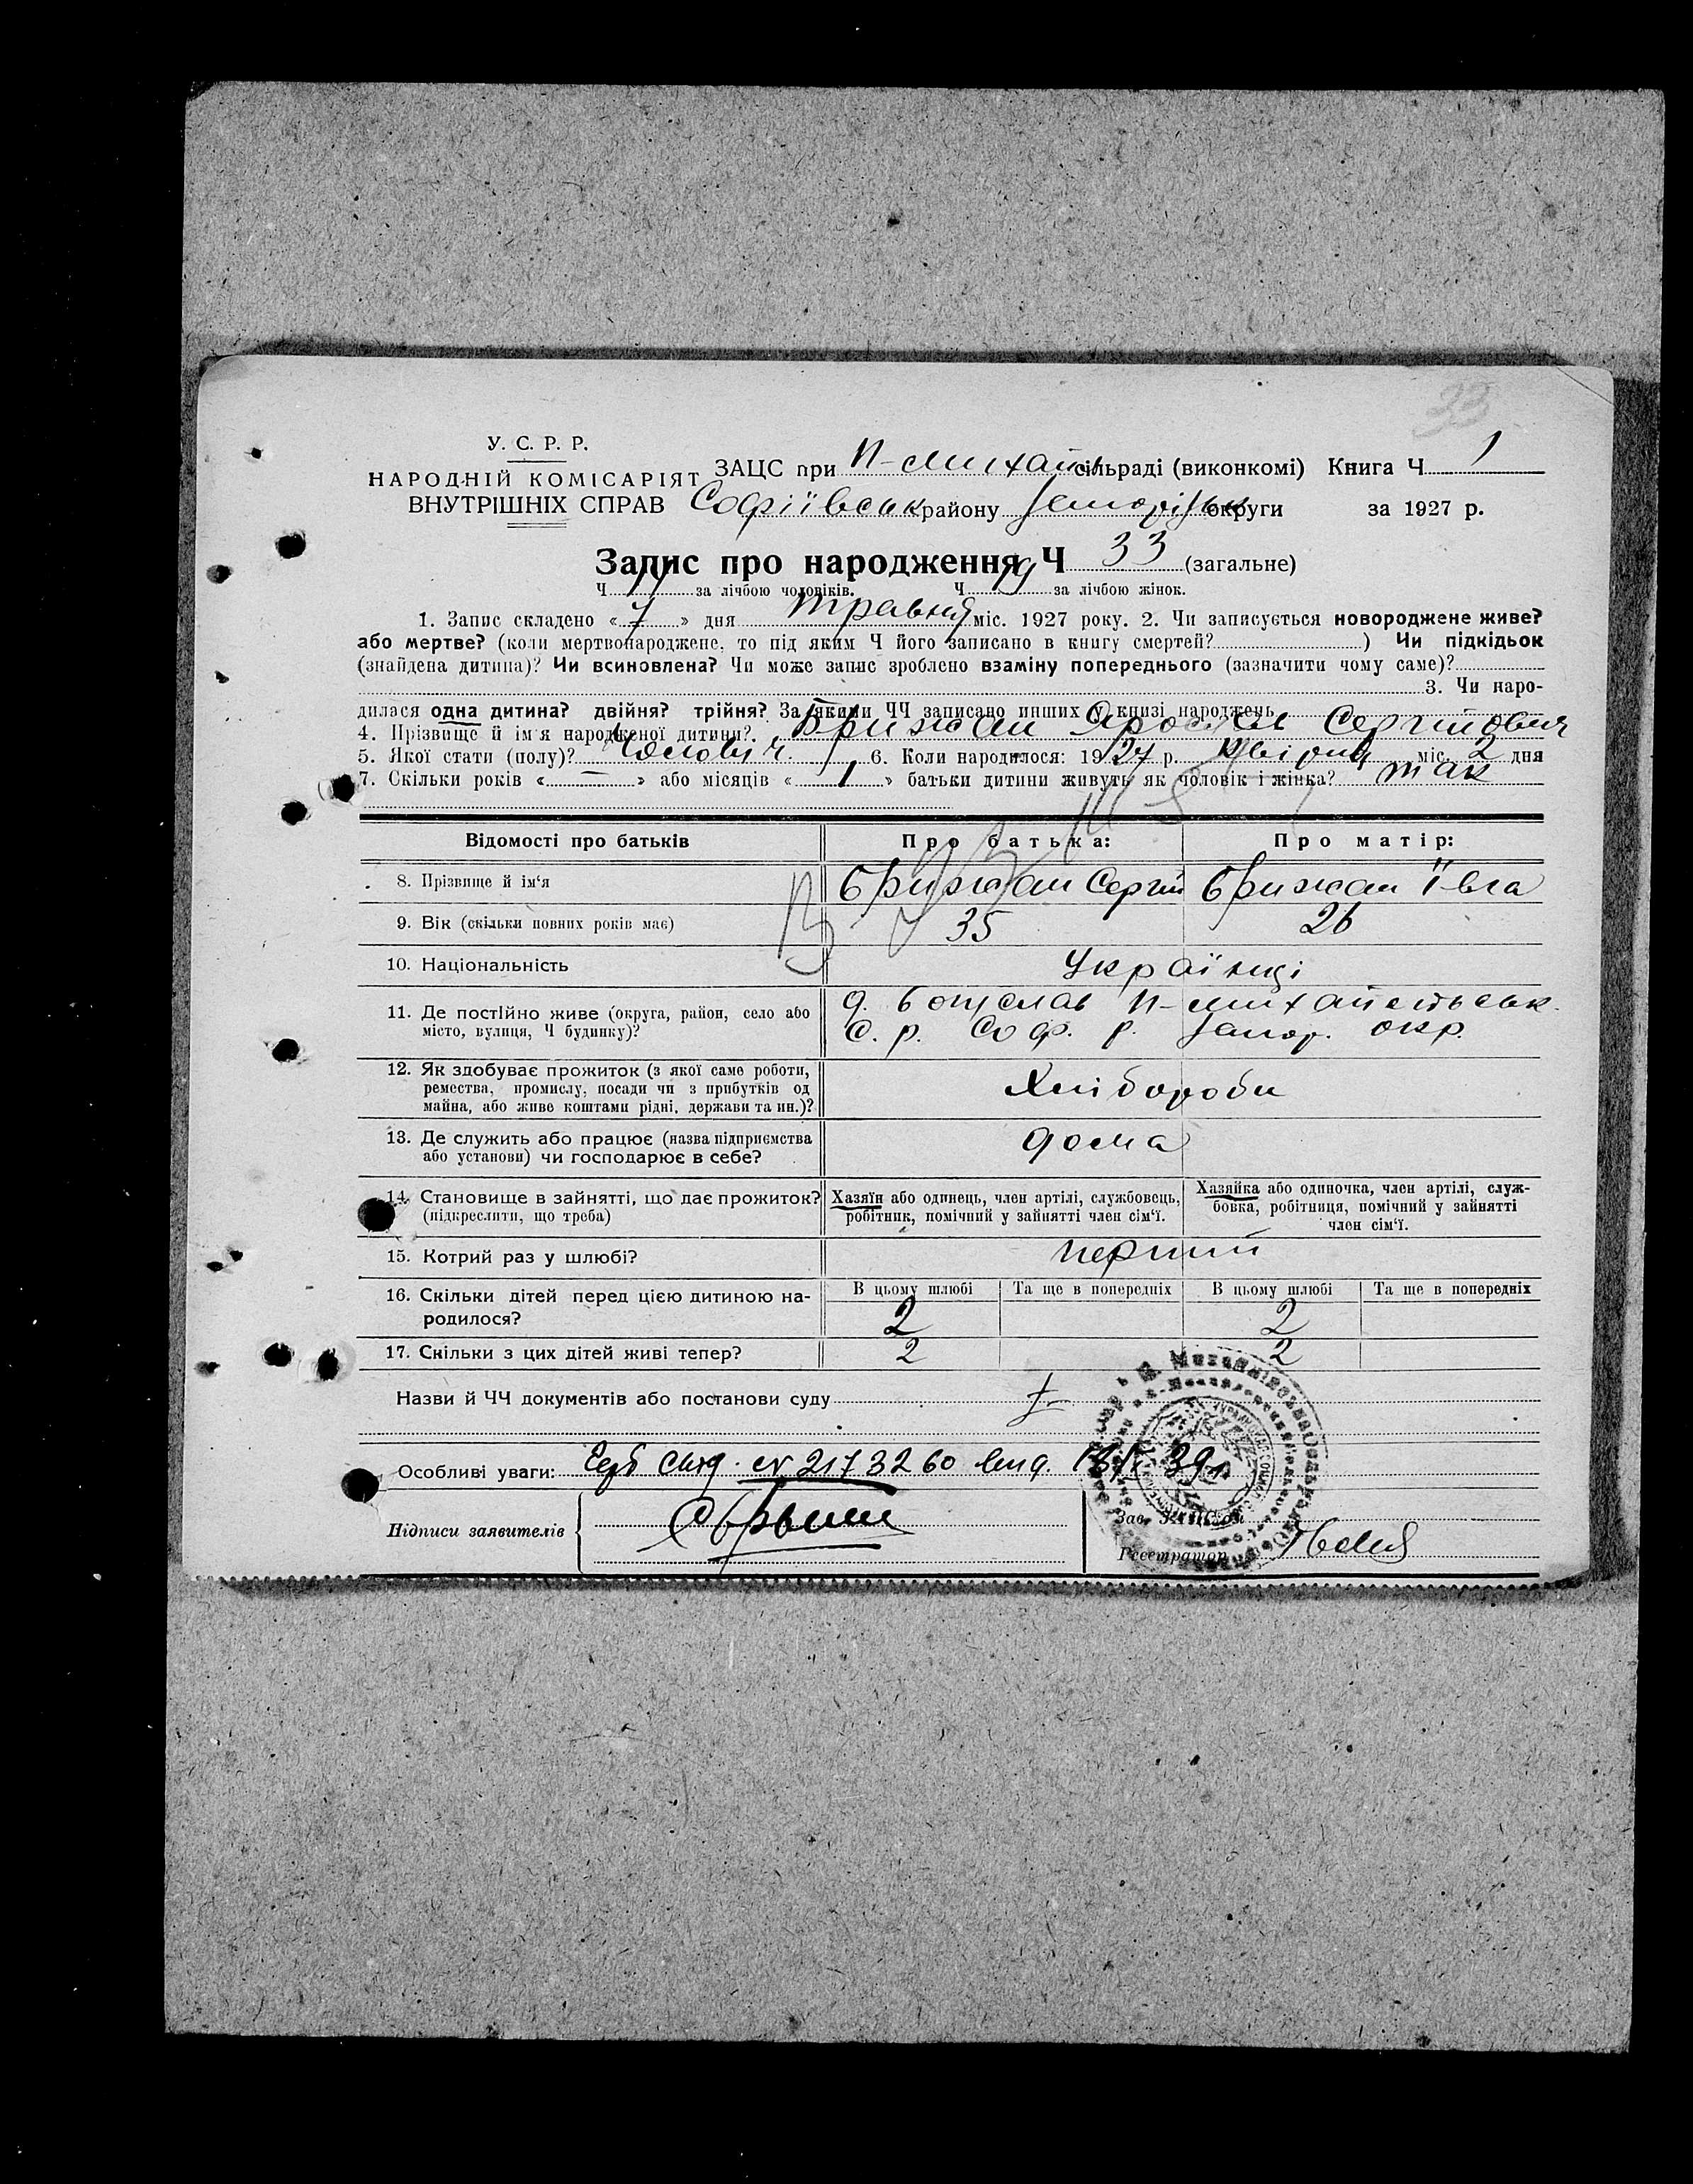 33
У. С. Р. Р.
НАРОДНІЙ КОМІСАРІЯТ
ВНУТРІШНІХ СПРАВ
ЗАЦС при Н-Михайл сільраді (виконкомі) Книга Ч 1
Софіївськ району Запоріжськ округи за 1927 р.
Запис про народження Ч 33 (загальне)
Ч 14 за лічбою чоловіків. Ч 19 за лічбою жінок.
1. Запис складено « 7 » дня травня міс. 1927 року. 2. Чи записується новороджене живе?
або мертве? (коли мертвонароджене, то під яким Ч його записано в книгу смертей? ) Чи підкідьок
(знайдена дитина)? Чи всиновлена? Чи може запис зроблено взаміну попереднього (зазначити чому саме)?
3. Чи наро-
дилася одна дитина? двійня? трійня? За якими ЧЧ записано инших у книзі народжень
4. Прізвище й ім'я народженої дитини? Брижан Сергійович
5. Якої стати (полу)? Чоловіч. 6. Коли народилося: 1927 р. Квітня міс. 2 дня
7. Скільки років « — » або місяців « 1 » батьки дитини живуть як чоловік і жінка? так
Відомості про батьків Про батька: Про матір:
8. Прізвище й ім'я Брижан Сергій Брижан Ївга
9. Вік (скільки повних років має) 35 26
10. Національність Українці
11. Де постійно живе (округа, район, село або
місто, вулиця, Ч будинку)?
Н-Михайлівськ.
с. р. Соф. р. Запор. окр.
12. Як здобуває прожиток (з якої саме роботи,
ремества, промислу, посади чи з прибутків од
майна, або живе коштами рідні, держави та ин.)?
Хлібороби
13. Де служить або працює (назва підприємства
або установи) чи господарює в себе?
дома
14. Становище в зайнятті, що дає прожиток?
(підкреслити, що треба)
Хазяїн або одинець, член артілі, службовець,
робітник, помічний у зайнятті член сім'ї.
Хазяйка або одиночка, член артілі, служ-
бовка, робітниця, помічний у зайнятті
член сім'ї.
15. Котрий раз у шлюбі? перший
В цьому шлюбі Та ще в попередніх В цьому шлюбі Та ще в попередніх
16. Скільки дітей перед цією дитиною на-
родилося?
2 2
17. Скільки з цих дітей живі тепер? 2 2
Назви й ЧЧ документів або постанови суду
Особливі уваги: Герб Свід. № 2173260 вид. 39 г.
Підписи заявителів
Зав. ЗАЦСом
Реєстратор